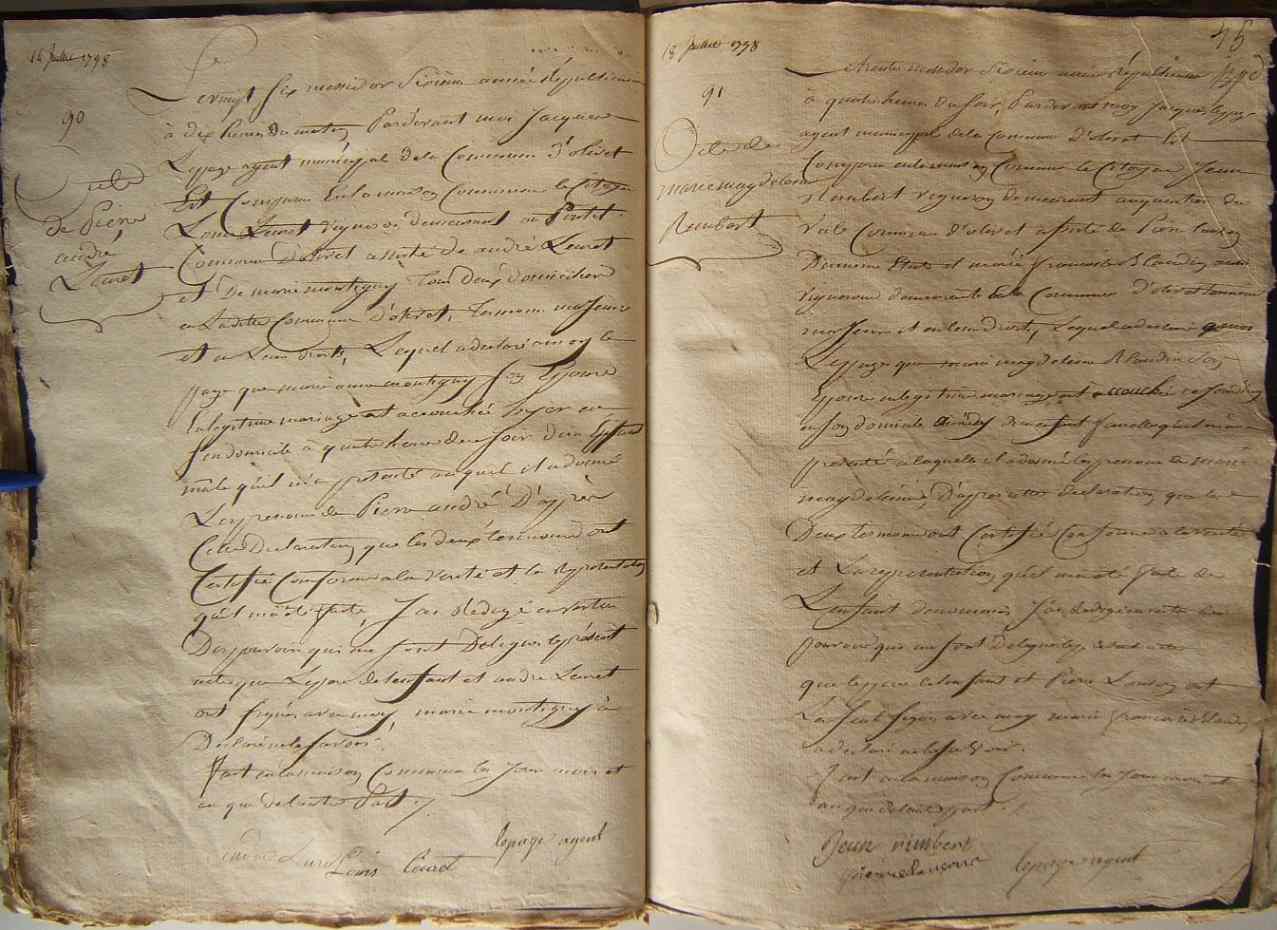 16 juillet 1798
90
acte de
De Piere
andré
Leuret
Le vingt six messidor sixieme année Republicaine
à dix heures du matin, Pardevant moi Jacques
Lepage agent municipal de la Commune d'olivet
Est Comparu En la maison Commune le Citoyen
Louis Leuret vigneron demeurant au
Commune d'olivet assisté de andré Leuret
et De marie montigny Tous deux domiciliés
en Ladite Commune D'olivet, Tesmoins majeurs
et en Leurs droits, Lequel a declaré a moy le
page que marie anne montigny son Epouse
en legitime mariage est accouchée hyer en
son domicile à quatre heures du soir d'un Enfant
mâle qu'il m'a presenté auquel il a donné
Les prenoms de Piere andré D'après
Cette Declaration, que les deux tesmoins ont
Certifié Conforme a la verité et la representation
qu'il m'a été faite, J'ai Rédigé en vertu
Des pouvoirs qui me sont Delegués le présent
acte que Le pere de l'enfant et andre Leuret
ont signés avec moy, marie montigny à
Declaré ne le savoir.
Fait en la maison Commune les Jour mois et
an que de l'autre Part.
andré Leuret
Louis Leuret
lepage agent
18 juillet 1798
45
91
acte de
marie magdeleine
Rembert
Le trente messidor Sixieme année Republicaine
à quatre heures du soir, Pardevant moy Jacques lepage
agent municipal de la Commune d'olivet Est
Comparu en la maison Commune le Citoyen Jean
Rembert vigneron demeurant au quartier du
Val Commune d'olivet assisté de Piere
et marie francoise Blandin
vigneron demeurante En la Commune d'olivet
majeurs et en leurs droits, Lequel a declaré a moi
Lepage que marie magdeleine Blandin son
Epouse en legitime mariage est accouchée
en son domicile d'un enfant femelle qu'il m'a
presenté a laquelle il a donné les prenoms de marie
magdeleine, D'apres cette declaration, que les
Deux tesmoins ont Certifié Conforme a la verité
et La representation qu'il m'a été faite de
L'enfant denommé, J'ai Redigé en vertu des
pouvoirs qui me sont Delegués le present acte
que le pere de l'enfant et Piere ont
signés avec moy marie francoise Blandin
a declaré ne le savoir.
Fait en la maison Commune les Jour mois et
an que de l'autre part.
Jean rimbert
lepage agent